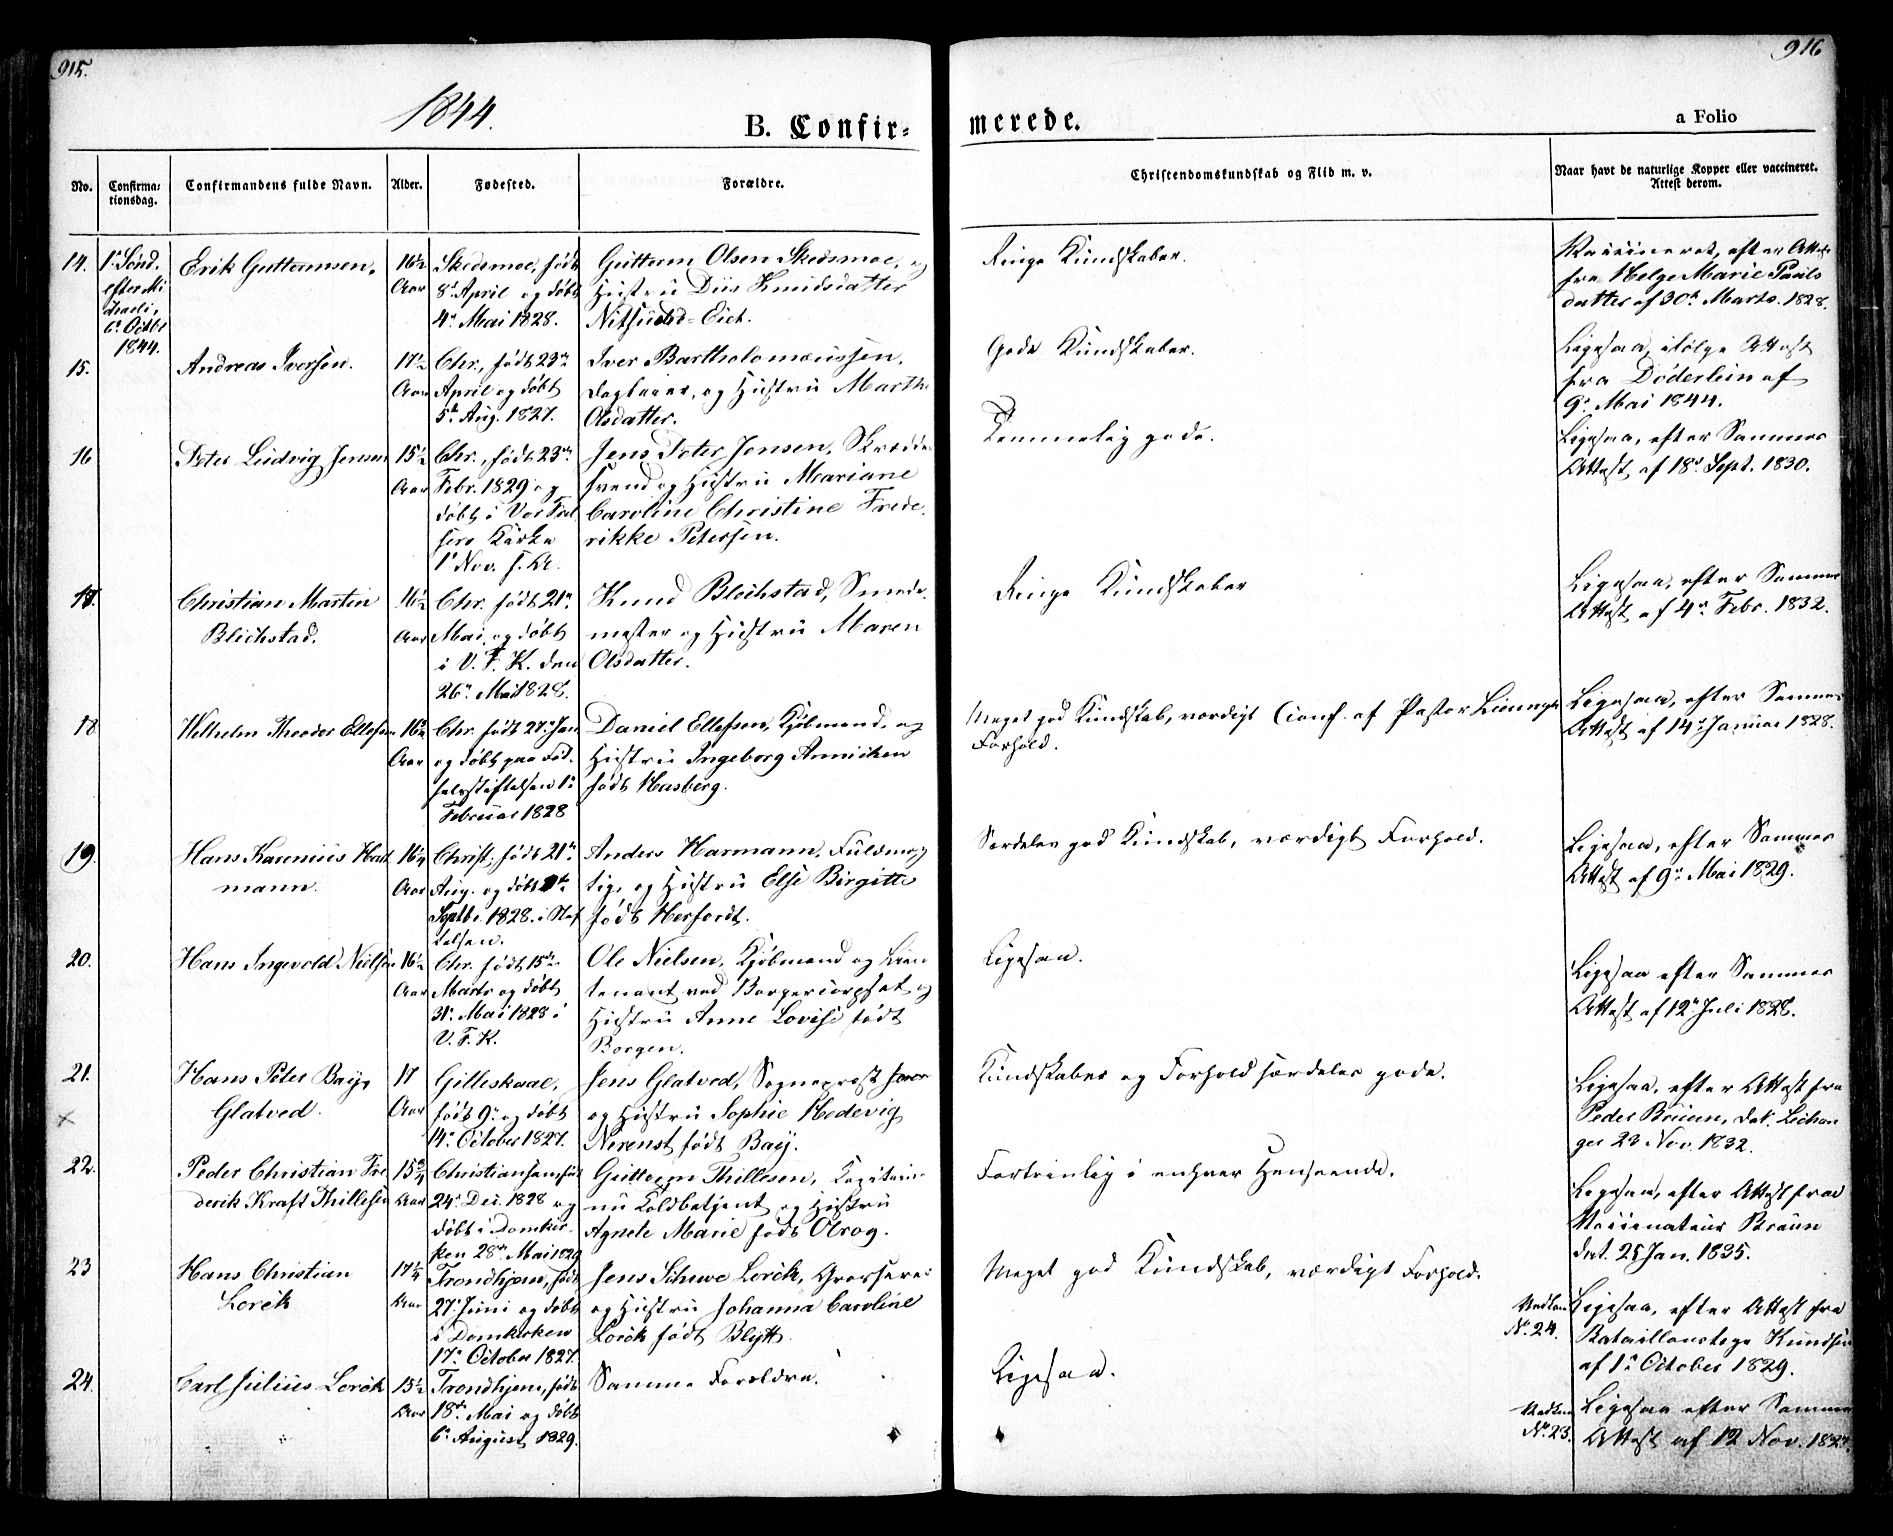 915.
916
1844.
B. Confir-
merede.
a Folio
No.
Confirma-
tionsdag.
Confirmandens fulde Navn.
Alder.
Fødested.
Forældre.
Christendomskundskab og Flid m. v.
Naar havt de naturlige Kopper eller vaccineret.
Attest derom.
14.
1ste Sønd.
efter Mi
chaeli,
6te Octbr
1844.
Erik Guttormsen.
16½
Aar
Skedsmoe, født
8de April og døbt
4de Mai 1828.
Guttorm Olsen Skedsmoe, og
Hustru Knudsdatter
Ringe Kundskaber.
Vaccineret, efter Attest
fra Helge Marie Pauls
datter af 30te Marts 1828.
15.
Andreas Iversen.
17½
Aar
Chr., født 23de
April og døbt
5te Aug. 1827.
Iver Bartholomæussen,
og Hustru Marthe
Olsdatter.
Gode Kundskaber.
Ligesaa, ifølge Attest
fra Døderlein af
9de Mai 1844.
16
Peter Ludvig Jensen
15½
Aar
Chr., født 23de
Febr. 1829 og
døbt i Vor Frel
sers Kirke
1ste Nov. s. A.
Jens Peter Jensen, Skrædder
svend og Hustru Mariane
Caroline Christine Frede-
rikke Petersen.
Temmelig gode.
Ligesaa, efter Sammes
Attest af 18de Sept. 1830.
17.
Christian Martin
Blichstad.
16½
Aar
Chr. født 21de
Mai, og døbt
i V. F. K. den
26de Mai 1828.
Knud Blichstad, Smede-
mester og Hustru Maren
Olsdatter.
Ringe Kundskaber
Ligesaa, efter Sammes
Attest af 4de Febr. 1832.
18
Wilhelm Theodor Ellefsen
Aar
Chr. født 27de Jan
og døbt paa Fød-
selsstiftelsen 1ste
Februar 1828
Daniel Ellefsen, Kjøbmand, og
Hustru Ingeborg Annichen
født Hasberg.
Meget god Kundskab, værdigt
Forhold.
(conf. af Pastor
Ligesaa, efter Sammes
Attest af 14de Januar 1828.
19.
Hans Karenius Har
mann.
Aar
Christ: født 21de
Aug. og døbt
Septbr. 1828. i Stif
telsen.
Anders Harmann, Fuldmæg
tig, og Hustru Else Birgitte
født Herfordt.
Særdeles god Kundskab, værdigt Forhold.
Ligesaa, efter Sammes
Attest af 9de Mai 1829.
20.
Hans Ingvold Nielsen
16½
Aar
Chr. født 15de
Marts og døbt
31te Mai 1828 i
V. F. K.
Ole Nielsen, Kjøbmand og Lieu
tenant ved Borgercorpset og
Hustru Anne Lovise født
Borgen.
Ligesaa.
Ligesaa efter Sammes
Attest af 12te Juli 1828.
21.
Hans Peter Bay
Glatved.
17
Aar
Gilleskaal,
født 9de og døbt
14de October 1827.
Jens Glatved, Sogneprest
og Hustru Sophie Hedevig
Nerenst født Bay.
Kundskaber og Forhold særdeles gode.
Ligesaa, efter Attest fra
Peder Bruun, dat. Lechan
ger 23 Nov. 1832.
22.
Peder Christian Fre
derik Kraft Thillesen
15¾
Aar
Christiansund
24de Dec. 1828 og
døbt i Domkir-
ken 28de Mai 1829
Guttorm Thillesen, Capitain
nu Toldbetjent og Hustru
Agnete Marie født Olrog.
Fortrinlig i enhver Henseende.
Ligesaa, efter Attest fra
Vaccinateur Bruun
dat. 25 Jan. 1835.
23
Hans Christian
Lorck
17¼
Aar
Trondhjem, født
27de Juni og døbt
i Domkirken
17de October 1827.
Jens Schive Lorck, Grosserer
og Hustru Johanna Caroline
Lorck født Blytt.
Meget god Kundskab, værdigt Forhold.
No. 24.
Ligesaa, efter Attest fra
Bataillonslæge Knudsen
af 1ste October 1829.
24.
Carl Julius Lorck
15½
Aar
Trondhjem, født
18de Mai og døbt
6te August 1829.
Samme Forældre.
Ligesaa.
No. 23.
Ligesaa efter Samme
Attest af 12 Nov.